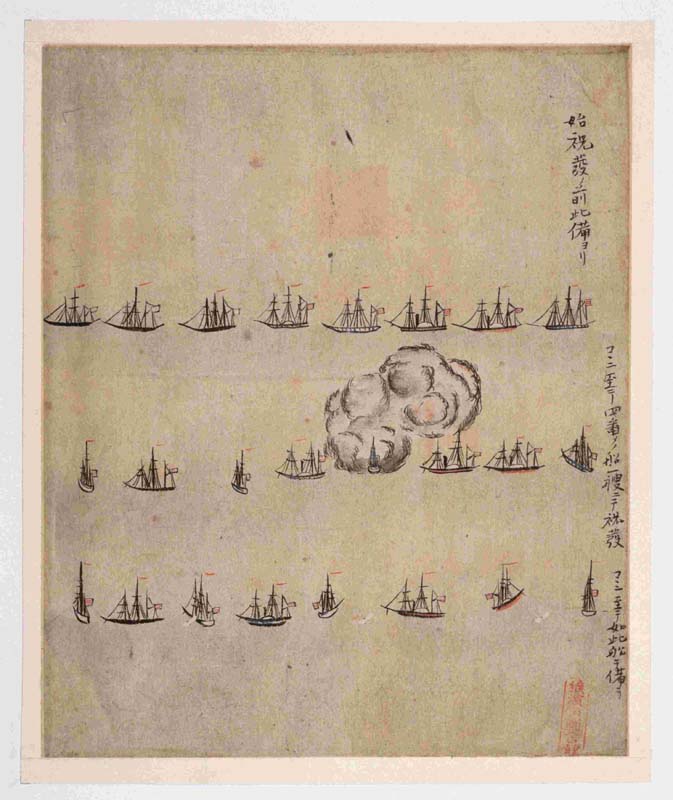 始祝發ノ前此備ヨリ
コヽニ至テ四番ノ船一艘ニテ祝發
コヽニ至テ如此船ヲ備フ